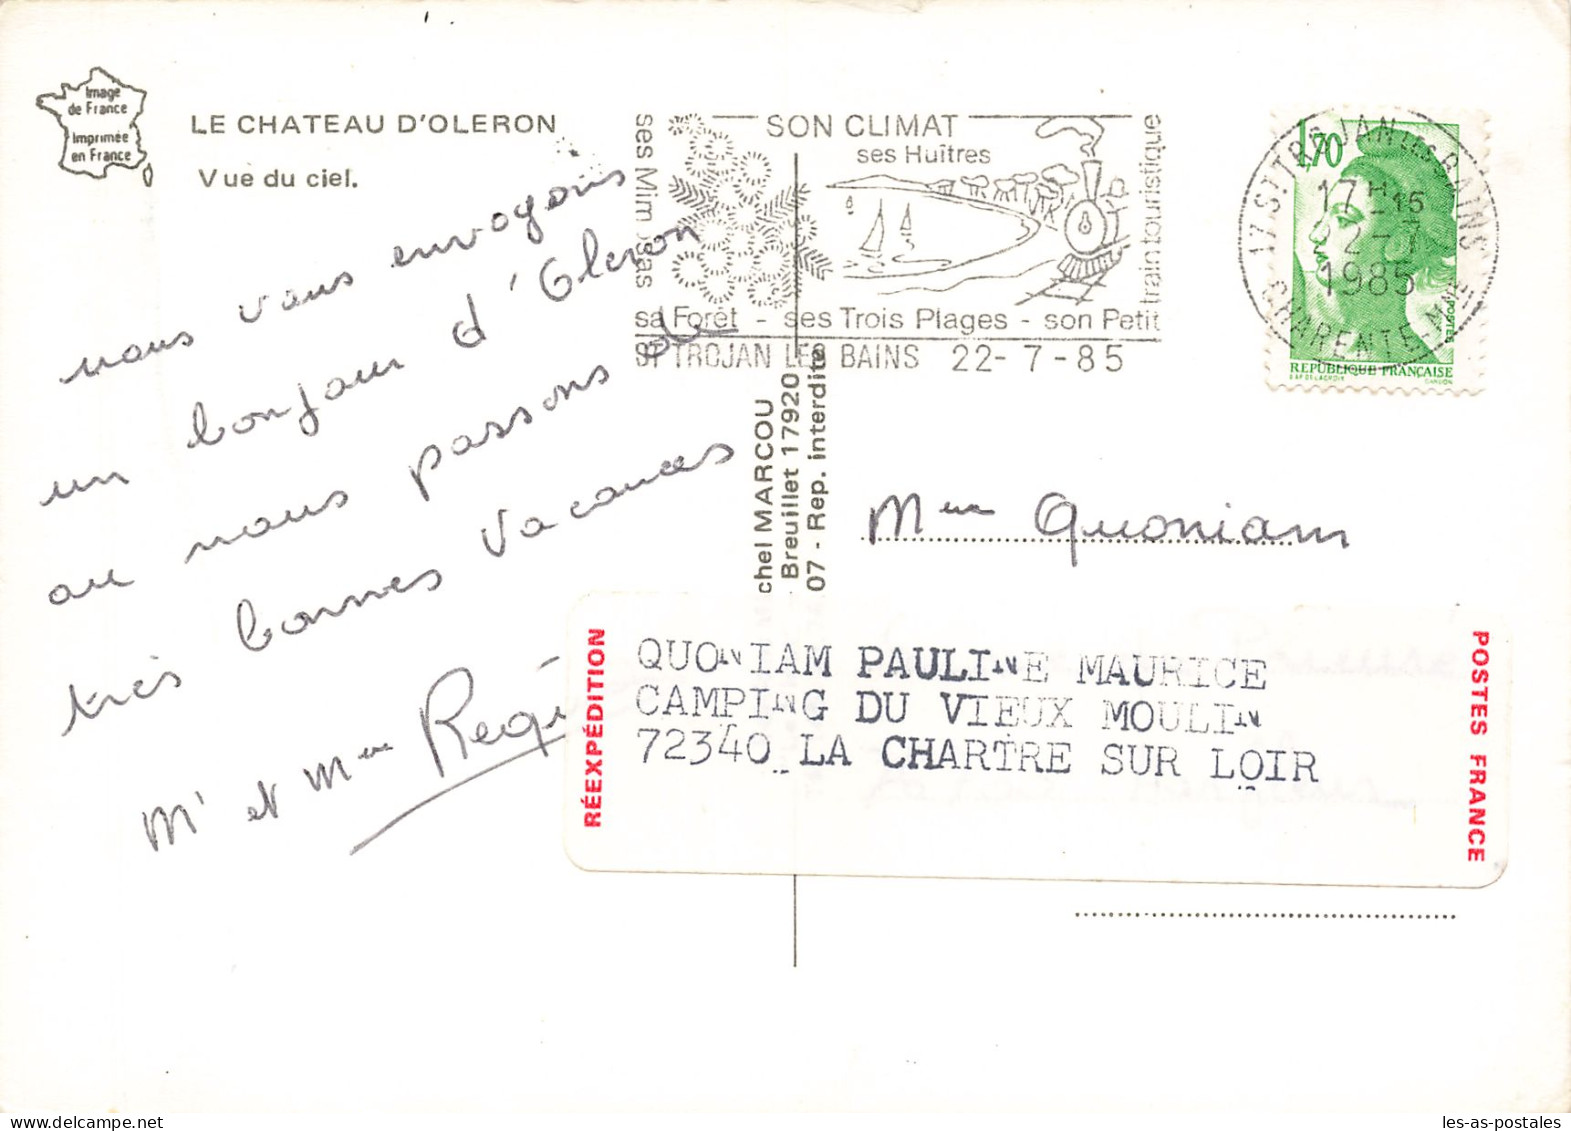 Image
de France
Imprimée
en France
LE CHATEAU D'OLERON
Vue du ciel.
nous vous envoyons
un bonjour d'Oleron
ou nous passons de
très bonnes vacances
Mr et Mme Regi
SON CLIMAT
ses Huîtres
ses Mimosas
train touristique
sa Forêt - ses Trois Plages - son Petit
ST TROJAN LES BAINS 22-7-85
1,70
17 ST TROJAN LES BAINS
17H15
22-7
1985
CHARENTE Mme
POSTES
REPUBLIQUE FRANÇAISE
DAP DELACROIX GANDON
chel MARCOU
Breuillet 17920
07 - Rep. interdite
Mme Quoniam
RÉEXPÉDITION
QUONIAM PAULINE MAURICE
CAMPING DU VIEUX MOULIN
72340 LA CHARTRE SUR LOIR
POSTES FRANCE
les-as-postales